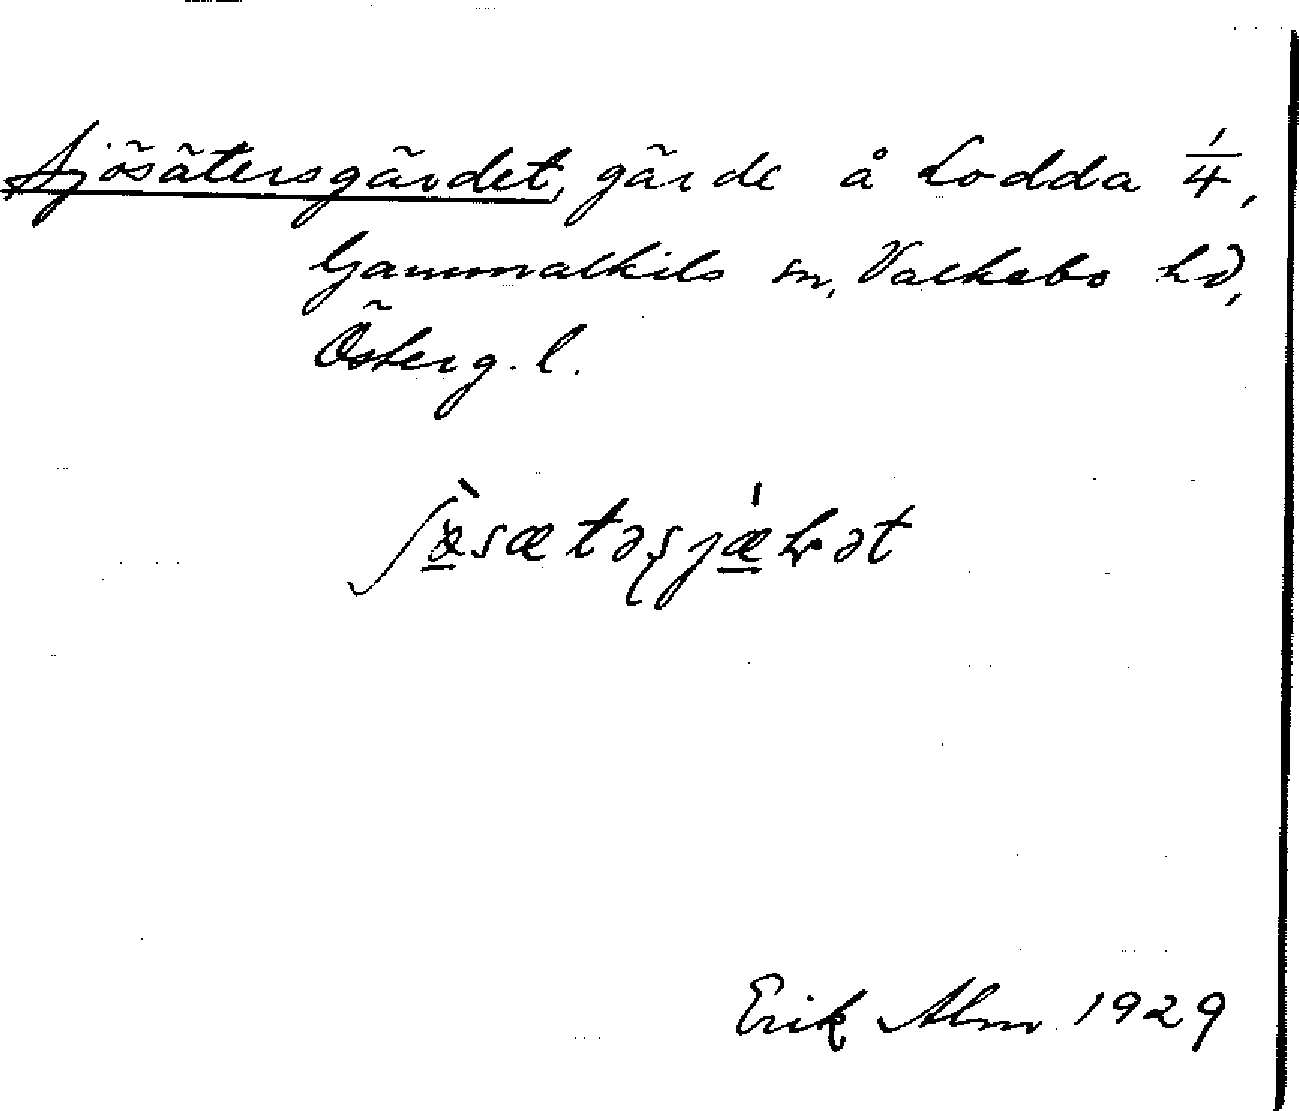 Sjösätersgärdet, gärde å Lodda 1/4,
Gammalkils sn, Valkebo hd,
Österg. l.
Erik Alm 1929